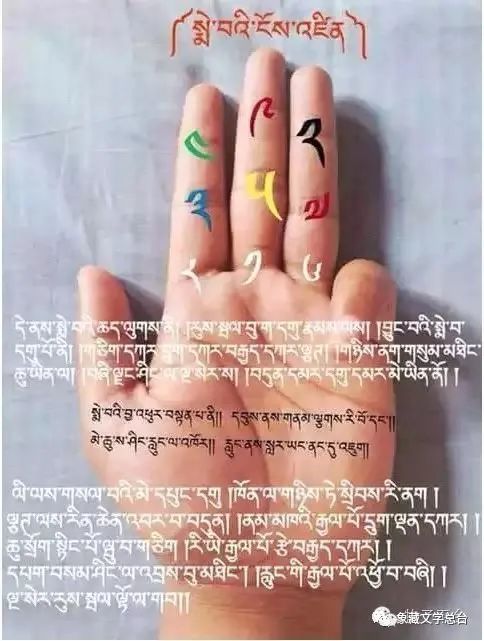 ༼ སྨེ་བའི་ངོས་འཛིན ༽
༤ ༩ ༢
༣ ༥ ༧
༨ ༡ ༦
དེ་ནས་སྨེ་བའི་ཆད་ལུགས་ནི། །རུས་སྦལ་བུ་ག་དགུ་རྣམས་ལས། །བྱུང་བའི་སྨེ་བ་
དགུ་པོ་ནི། །གཅིག་དཀར་དྲུག་དཀར་བརྒྱད་དཀར་ལྕགས། །གཉིས་ནག་གསུམ་མཐིང་
ཆུ་ཡིན་ལ། །བཞི་ལྗང་ཤིང་ལ་ལྔ་སེར་ས། །བདུན་དམར་དགུ་དམར་མེ་ཡིན་ནོ། །
སྨེ་བའི་བྱ་འཕུར་བསྟན་པ་ནི།། དབུས་ནས་གནམ་ལྕགས་རི་བོ་དང་།།
མེ་ཆུ་ས་ཤིང་རླུང་ལ་འཁོར།། རླུང་ནས་སླར་ཡང་ནང་དུ་འཇུག།
ལི་ལས་གསལ་བའི་མེ་དཔུང་དགུ །ཁོན་ལ་གཉིས་ཏེ་སྲིབས་རི་ནག །
ལྕགས་ལས་རིན་ཆེན་འབར་བ་བདུན། །ནམ་མཁའི་རྒྱལ་པོ་དྲུག་ལྡན་དཀར། །
ཆུ་སྲོག་སྙིང་པོ་ལྟ་བུ་གཅིག །རི་ཡི་རྒྱལ་པོ་རྩེ་བརྒྱད་དཀར། །
དཔག་བསམ་ཤིང་ལ་འབྲས་བུ་མཐིང་། །རླུང་གི་རྒྱལ་པོ་འཕྱོ་བ་བཞི། །
ལྔ་སེར་རུས་སྦལ་ལྟོ་ལ་གབ།།
象藏文学总台